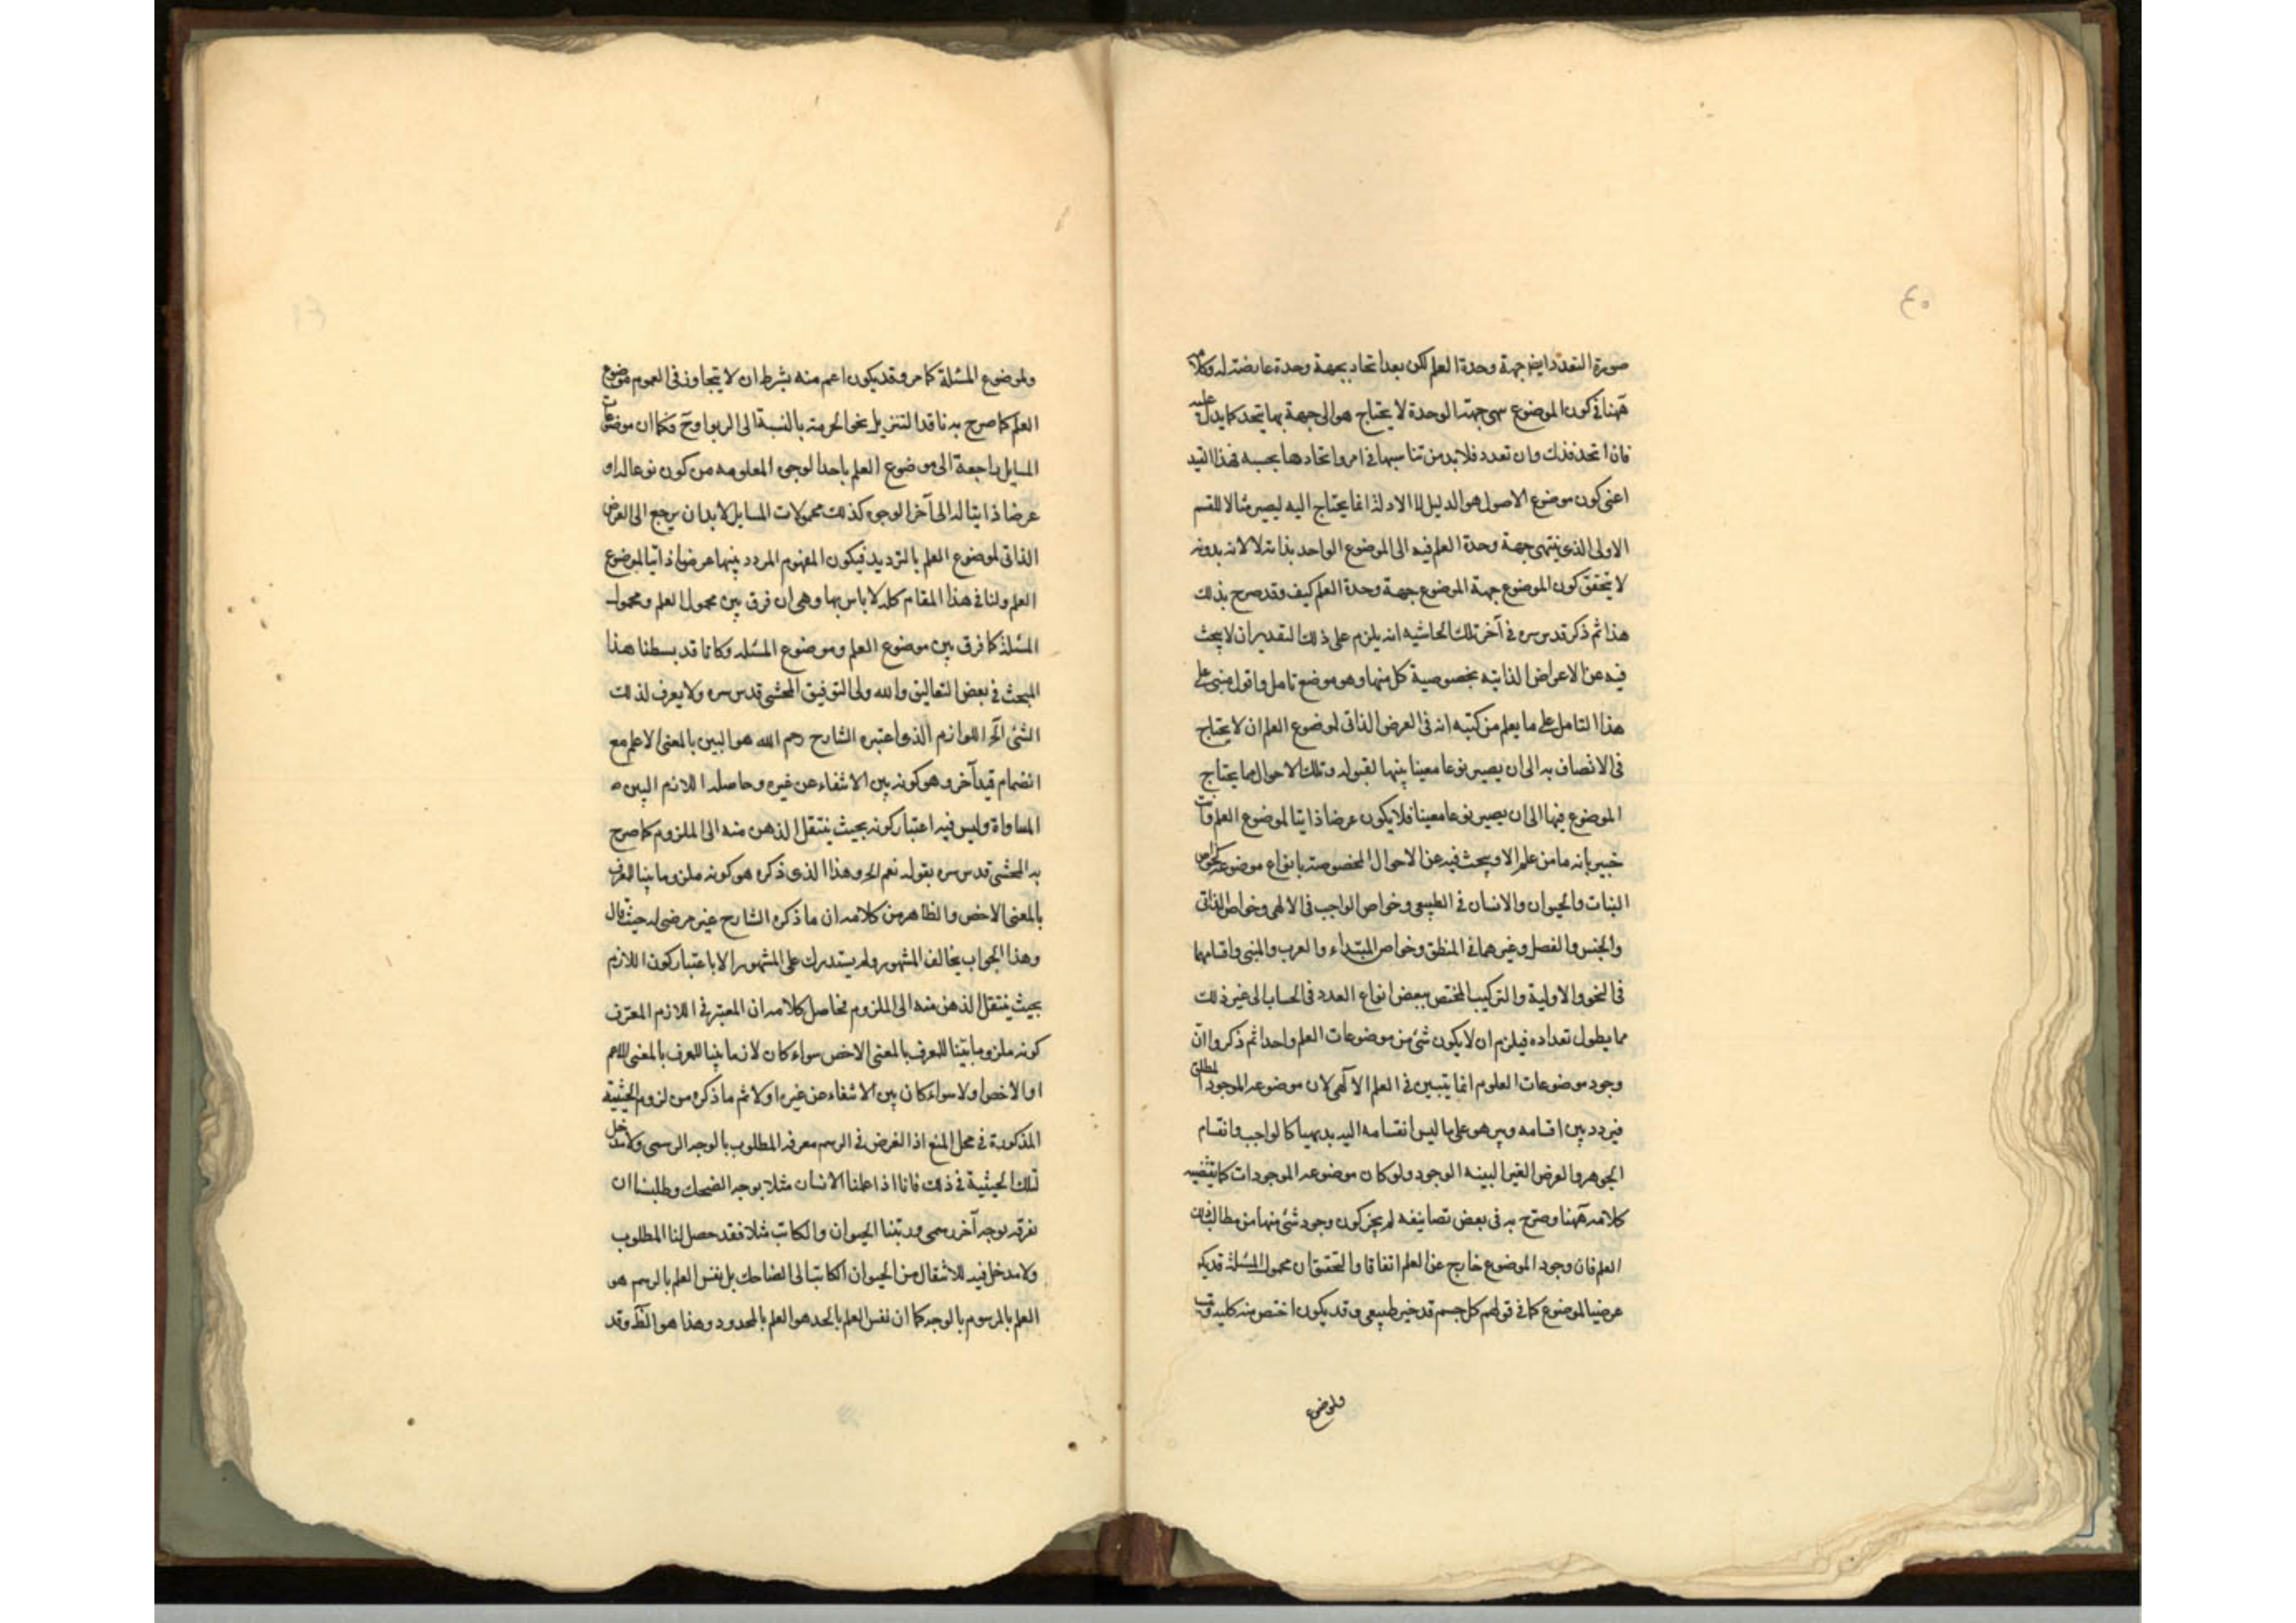 ٤٠
صورة التعدد ايض جهة وحدة العلم لكن بعد اتحاد بجهة وحدة عارضة له وكلامه
ههنا في كون الموضوع سمى جهته الوحدة لا يحتاج هو الى جهة بها يتحد كما يدل عليه
فاذا اتحد فذلك وان تعدد فلا بد من تناسبها في امر واتحادها بحسبه فهذا القيد
اعنى كون موضوع الاصول هو الدليل لا الادلة انما يحتاج اليه ليصير مثالا للقسم
الاولى الذي ينتهى جهة وحدة العلم فيه الى الموضوع الواحد بذاته لا لانه بدونه
لا يتحقق كون الموضوع جهة الموضوع جهة وحدة العلم كيف وقد صرح بذلك
هذا ثم ذكر قدس سره في آخر تلك الحاشيه انه يلزم على ذلك التقدير ان لا يبحث
فيه عن الاعراض الذاتيه بخصوصية كل منها وهو موضع تامل واقول مبنى على
هذا التامل على ما يعلم من كتبه انه فى العرض الذاتى لموضوع العلم ان لا يحتاج
فى الاتصاف به الى ان يصير نوعا معينا يتهيا لقبوله وتلك الاحوال مما يحتاج
الموضوع فيها الى ان يصير نوعا معينا فلا يكون عرضا ذاتيا لموضوع العلم وانت
خبير بانه ما من علم الا ويبحث فيه عن الاحوال المخصوصة بانواع موضوعه كخواص
النبات والحيوان والانسان في الطبيعى وخواص الواجب فى الالهى وخواص الذاتى
والجنس والفصل وغيرهما في المنطق وخواص المبتداء والمعرب والمبنى واقسامهما
فى النحو والاولية والتركيب المختص ببعض انواع العدد فى الحساب الى غير ذلك
مما يطول تعداده فيلزم ان لا يكون شئ من موضوعات العلم واحدا ثم ذكروا ان
وجود موضوعات العلوم انما يتبين في العلم الآلهى لان موضوعه الموجود المطلق
فيردد بين اقسامه ويبرهن على ما ليس انقسامه اليه بديهيا كالواجب وانقسام
الجوهر والعرض الغير البينه الوجود ولو كان موضوعه الموجودات كما يقتضيه
كلامه ههنا وصرح به فى بعض تصانيفه لم يجز كون وجود شئ منها من مطالب ذلك
العلم فان وجود الموضوع خارج عن العلم اتفاقا والتحقيق ان محمول المسئلة قد يكون
عرضيا لموضوع كما في قولهم كل جسم فله حيز طبيعى وقد يكون اخص منه كليه
ولموضوع
ولموضوع المسئلة كما مر وقد يكون اعم منه بشرط ان لا يتجاوز فى العموم موضوع
العلم كما صرح به ناقد التنزيل بخو الحرمة بالنسبة الى الربوا وح فكما ان موضوعات
المسايل راجعة الى موضوع العلم باحد الوجوه المعلومه من كون نوعا له او
عرضا ذاتيا له الى آخر الوجوه كذلك محمولات المسايل لا بد ان يرجع الى العرض
الذاتى لموضوع العلم بالترديد فيكون المفهوم المردد بينها عرضا ذاتيا لموضوع
العلم ولنا في هذا المقام كلام لا باس بها وهى ان فرق بين محمول العلم ومحمول
المسئلة كما فرق بين موضوع العلم وموضوع المسئله وكانا قد بسطنا هذا
المبحث في بعض التعاليق والله ولى التوفيق المحشى قدس سره ولا يعرف لذلك
الشئ الخ اللوازم الذى اعتبره الشارح رحم الله هو البين بالمعنى الاعلم مع
انضمام قيد آخر وهو كونه بين الانتفاء عن غيره وحاصله اللازم البين
المساواة وليس فيه اعتبار كونه بحيث ينتقل الذهن منه الى الملزوم كما صرح
به المحشى قدس سره بقوله نعم الخ وهذا الذى ذكره هو كونه ملزوما بينا للمعرف
بالمعنى الاخص والظاهر من كلامه ان ما ذكره الشارح غير مرضى له حيث قال
وهذا الجواب يخالف المشهور ولم يستدرك على المشهور الا باعتبار كون اللازم
بحيث ينتقل الذهن منه الى الملزوم فحاصل كلامه ان المعتبر في اللازم المعرف
كونه ملزوما بينا للمعرف بالمعنى الاخص سواء كان لازما بينا للمعرف بالمعنى الاعم
او الاخص او لا سواء كان بين الانتفاء عن غيره او لا ثم ما ذكره من لزوم الحيثية
المذكورة في محل المنع اذ الغرض في الرسم معرفه المطلوب بالوجه الرسمى ولا مدخل
لتلك الحيثية في ذلك فانا اذا علمنا الانسان مثلا بوجه الضحك وطلبنا ان
نعرفه بوجه آخر رسمى ورتبنا الحيوان والكاتب مثلا فقد حصل لنا المطلوب
ولا مدخل فيه للانتقال من الحيوان الكاتب الى الضاحك بل نفس العلم بالرسم هو
العلم بالمرسوم بالوجه كما ان نفس العلم بالحد هو العلم بالمحدود وهذا هو الظ وقد